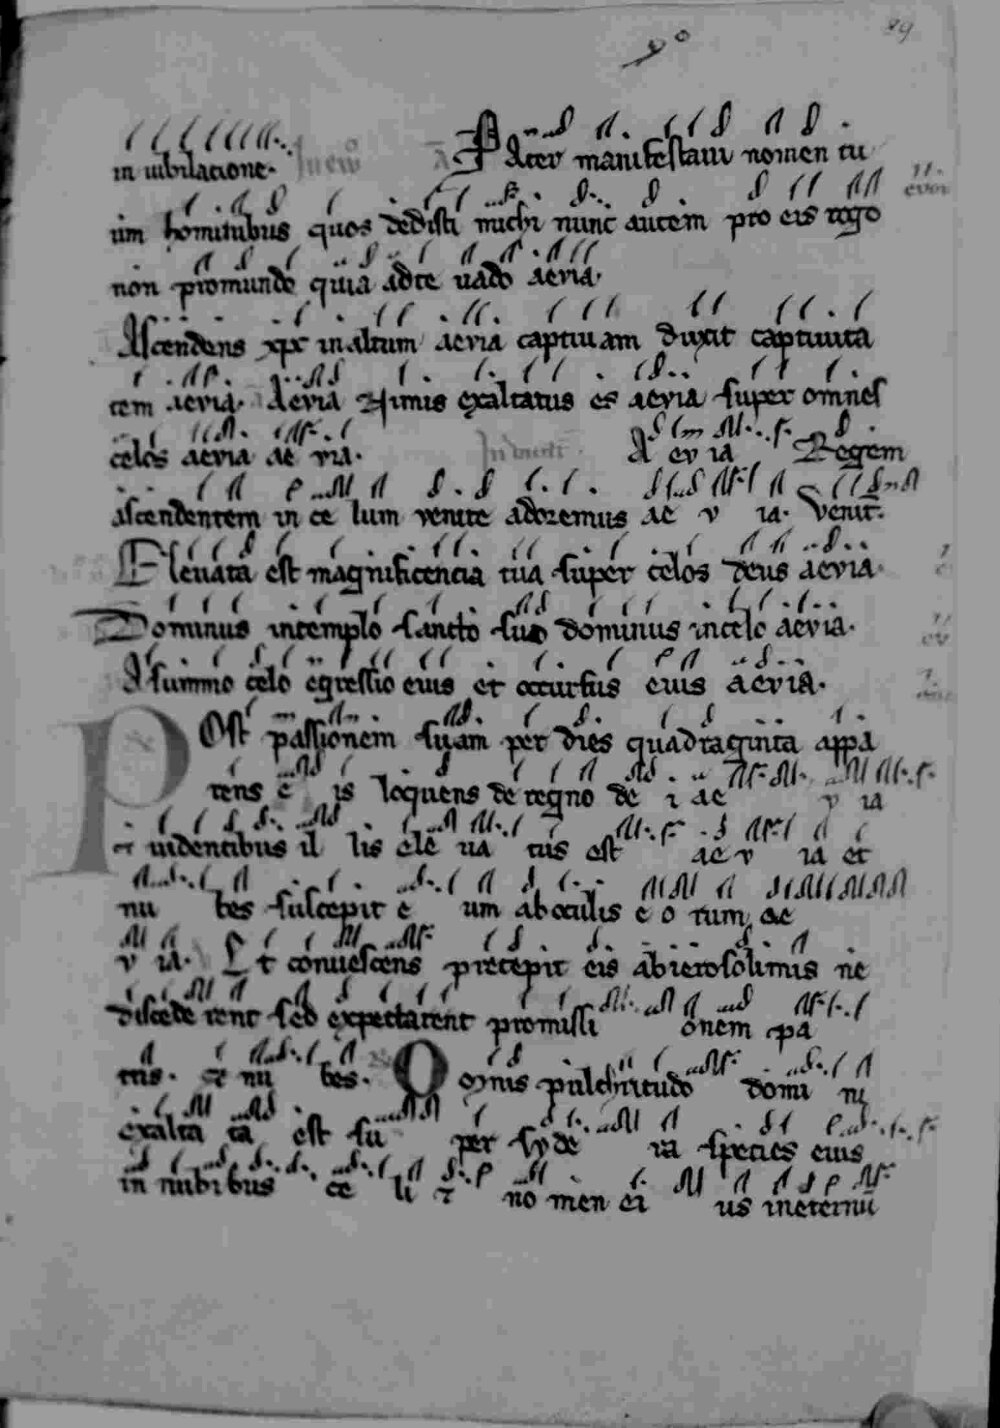 29
in iubilacione. In ew̄ A Pater manifestaui nomen tu
um hominibus quos dedisti michi nunc autem pro eis rogo
non promundo quia adte uado aevia.
Ascendens xp̄c inaltum aevia captiuam duxit captiuita
tem aevia. Aevia Nimis exaltatus es aevia super omnes
celos aevia ae via. A ev ia Regem
ascendentem in ce lum venite adoremus ae v ia. Venit̄.
Eleuata est magnificencia tua super celos deus aevia.
Dominus intemplo sancto suo dominus incelo aevia.
A summo celo egressio eius et occursus eius aevia.
Post passionem suam per dies quadraginta appa
rens e is loquens de regno de i ae v ia
et uidentibus il lis ele ua tus est ae v ia et
nu bes suscepit e um aboculis e o rum ae
v ia. Et conuescens precepit eis abierosolimis ne
discede rent sed expectarent promissi onem pa
tris. et nu bes. Omnis pulchritudo domi ni
exalta ta est su per syde ra species eius
in nubibus ce li et no men ei us ineternū